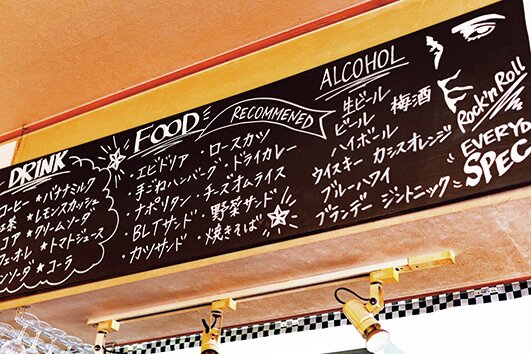 DRINK
コーヒー ★バナナミルク
紅茶 ★レモンスカッシュ
ココア ★クリームソーダ
フェ・オレ ★トマトジュース
ンソーダ ★コーラ
FOOD RECOMMENED
・エビドリア ・ロースカツ
・手ごねハンバーグ ・ドライカレー
・ナポリタン ・チーズオムライス
・BLTサンド ・野菜サンド
・カツサンド ・焼きそば
ALCOHOL
生ビール 梅酒
ビール
ハイボール
ウイスキー カシスオレンジ
ブルーハワイ
ブランデー ジントニック
Rock'n Roll
EVERYD
SPEC